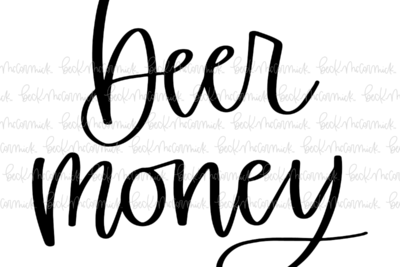 beer
money